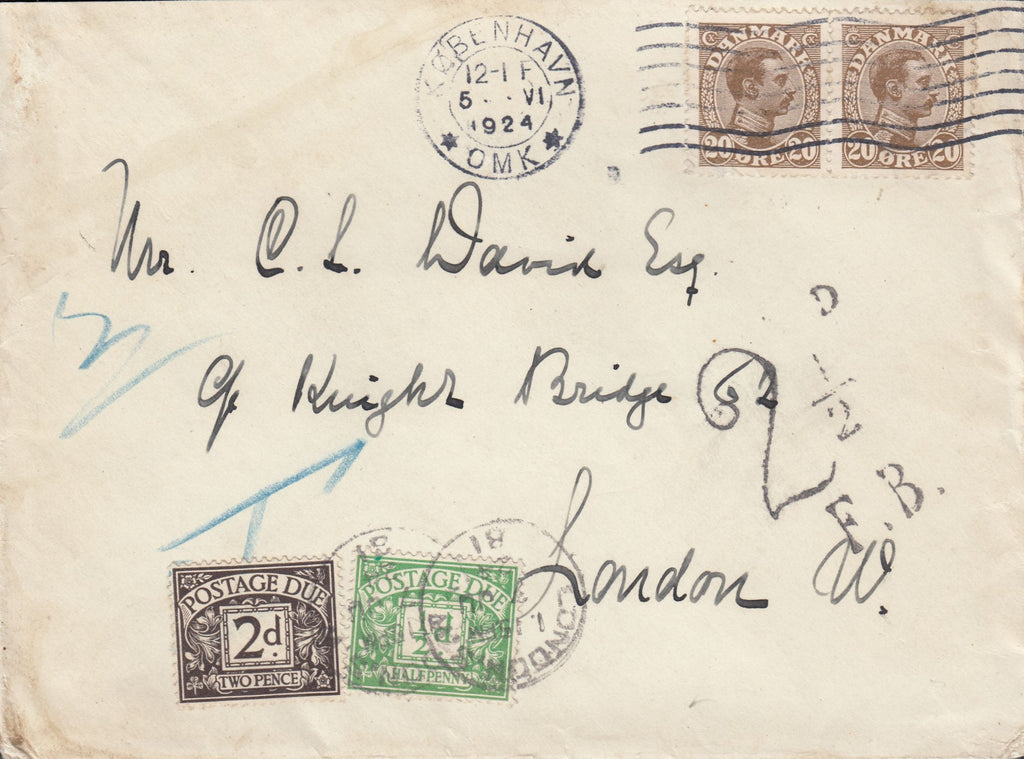 KØBENHAVN
12-1 F
5 - VI
1924
OMK
DANMARK DANMARK
20 ØRE 20 20 ØRE 20
Mr. C. L. David Esq.
c/o Knight Bridge 62
London W.
D
1/2
F.B.
T
POSTAGE DUE
2d.
TWO PENCE
POSTAGE DUE
½d.
HALFPENNY
LONDON